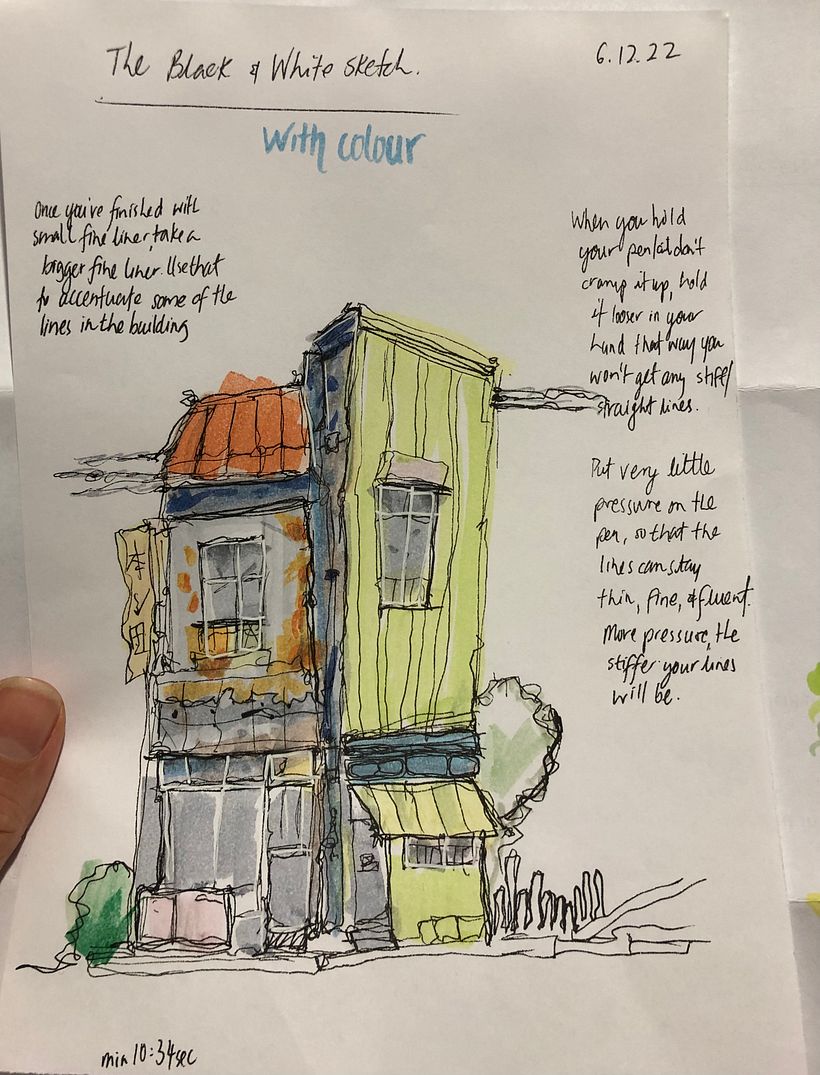 The Black & White sketch.
6.12.22
With colour
Once you've finished with
small fine liner, take a
bigger fine liner. Use that
to accentuate some of the
lines in the building
When you hold
your pen(cil) don't
cramp it up, hold
it looser in your
hand that way you
won't get any stiff/
straight lines.
Put very little
pressure on the
pen, so that the
lines can stay
thin, fine, & fluent.
More pressure, the
stiffer your lines
will be.
min 10:34sec